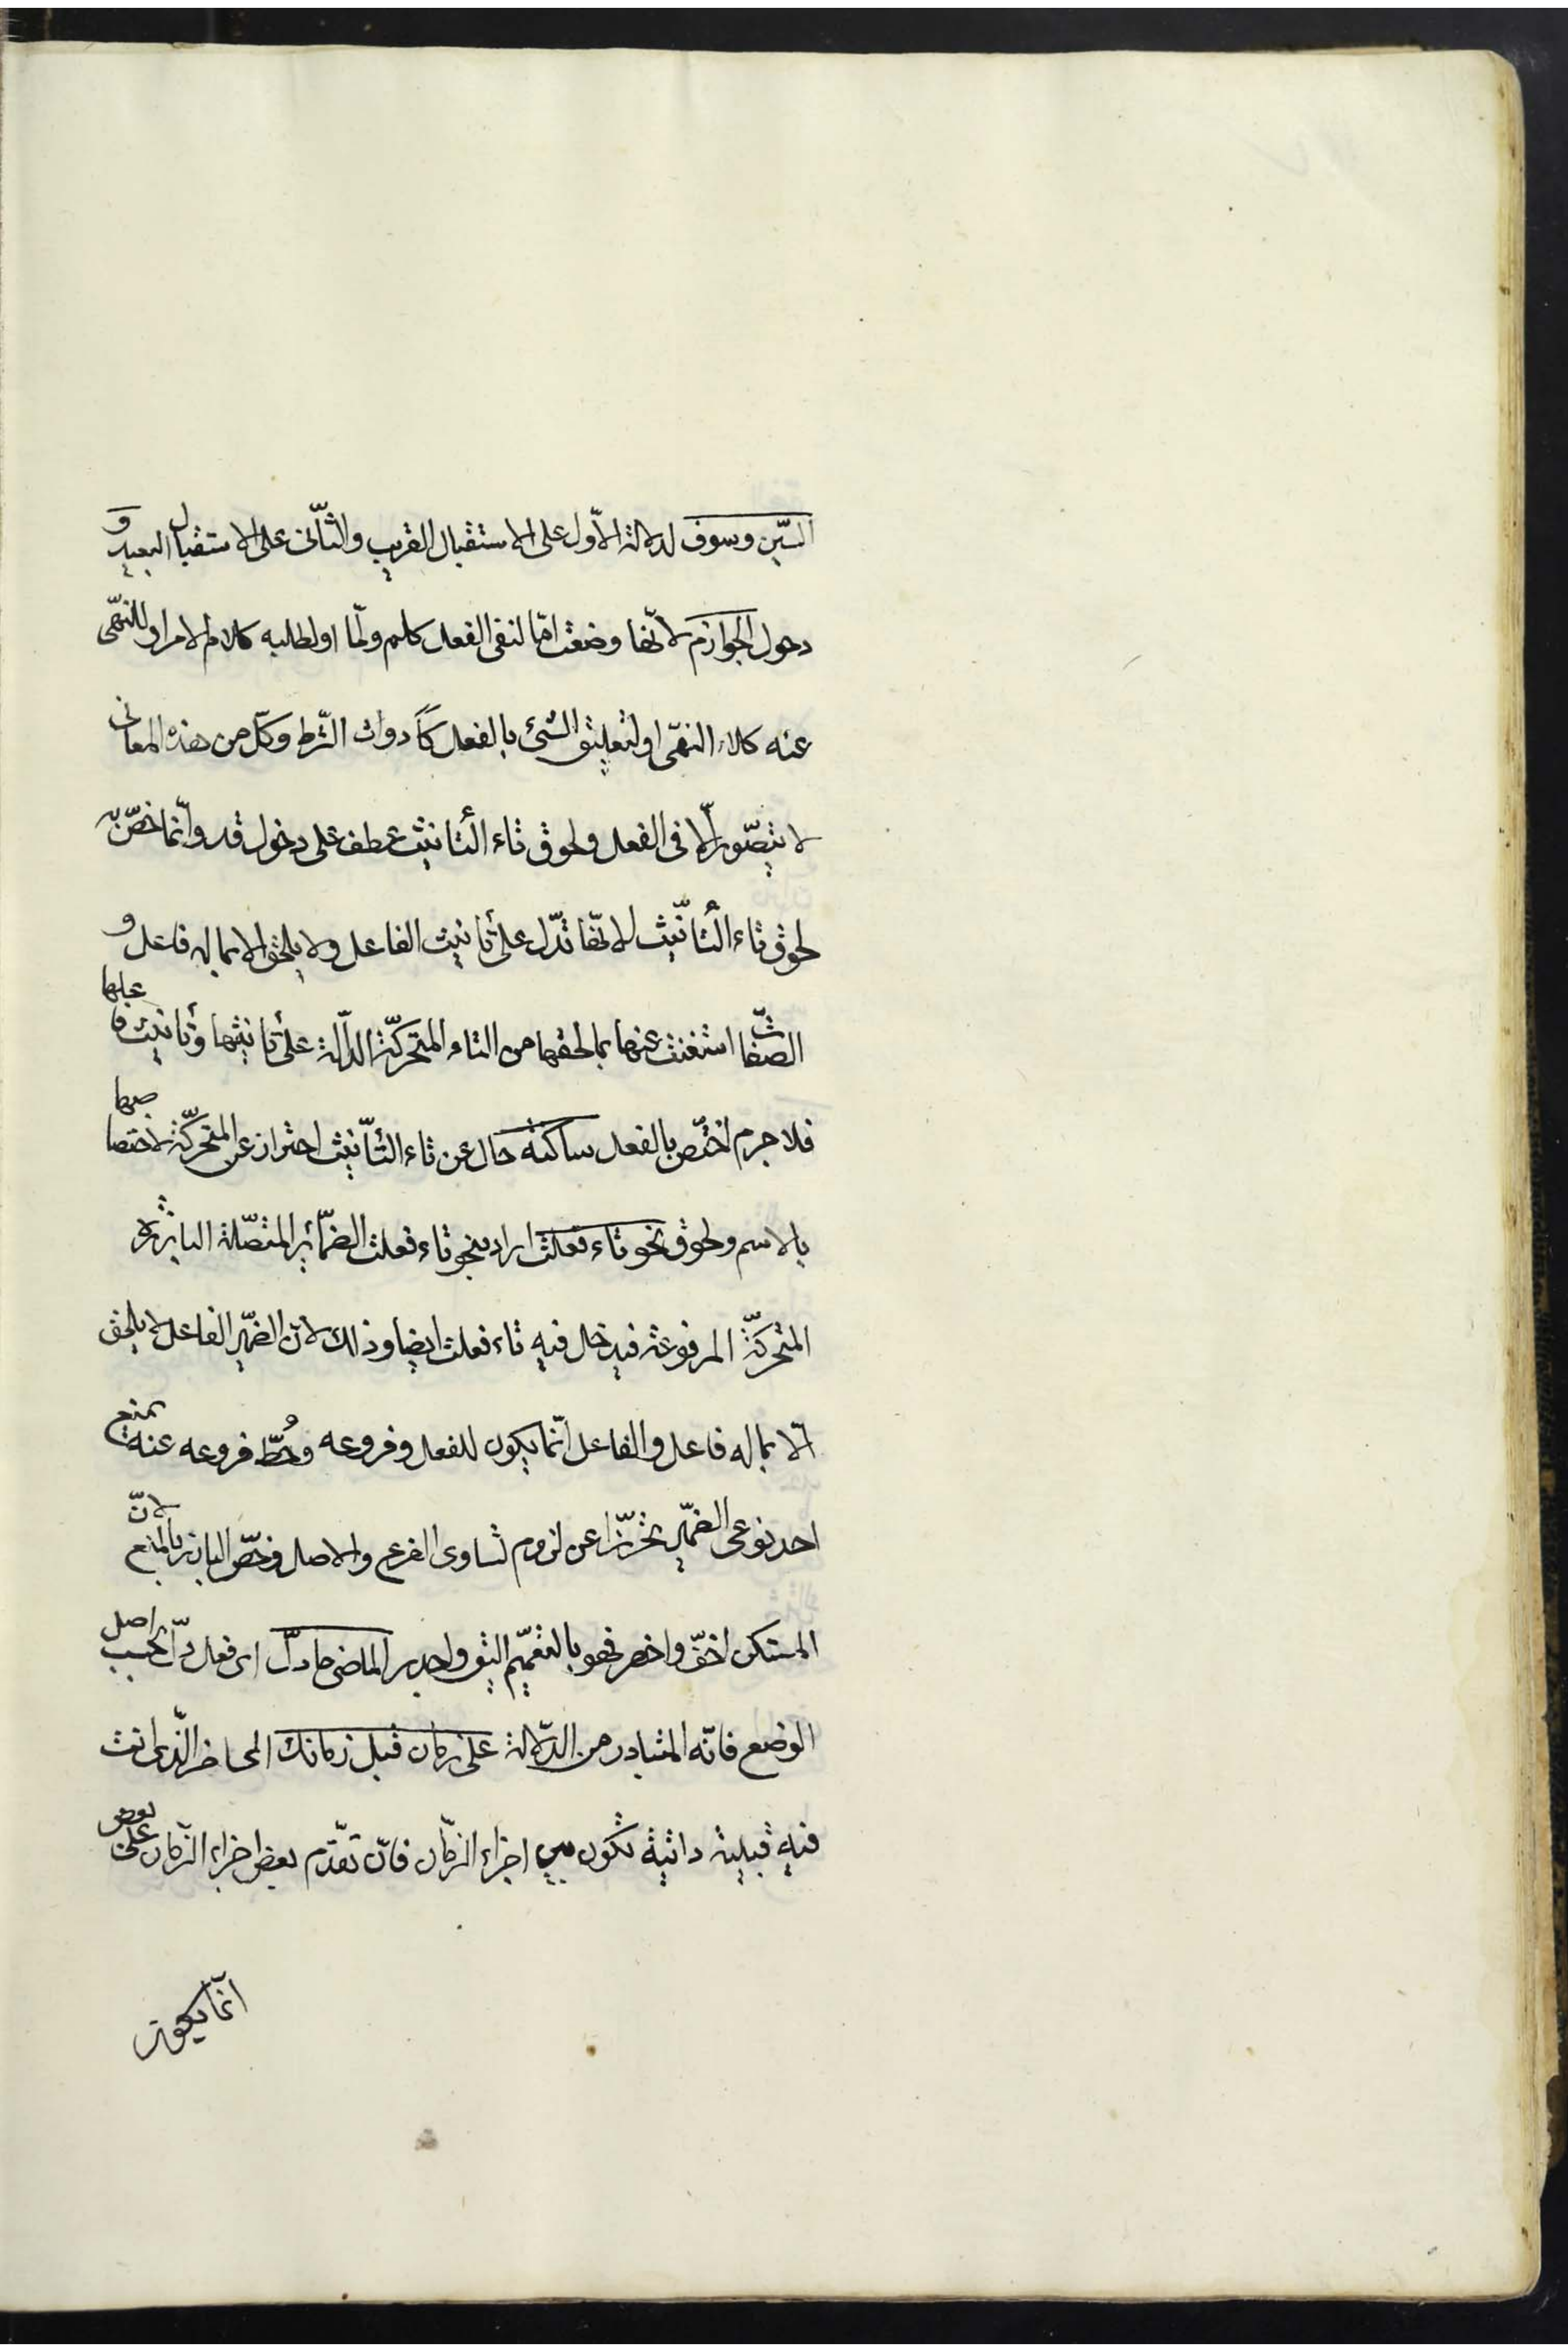 السّين وسوف لدلالة الاّول على الاستقبال القريب والثّانى على الاستقبال البعيد و
دخول الجوازم لانّها وضعت امّا لنفى الفعل كلم ولّما او لطلبه كلام الامر او للنهّى
عنه كلاء النهّى او لتعليق الشئ بالفعل كأدوات الشّرط وكلّ من هذه المعانى
لا يتصّور الّا فى الفعل ولحوق تاء التأنيث عطف على دخول قد وانّما خصّ به
لحوق تاء التأنيث لانّها تدّل على تأنيث الفاعل ولا يلحق الا بما له فاعل و
الصّفات استغنت عنها بما لحقها من التاء المتحركّة الدّالة على تأنيثها وتأنيث فاعلها
فلا جرم اختّص بالفعل ساكنة حال عن تاء التّأنيث احتراز عن المتحركّة لاختصاصها
بالاسم ولحوق نحو تاء فعلت اراد بنحو تاء فعلت الضمّائر المتصّلة البارزة
المتحركّة المرفوعة فيدخل فيه تاء فعلت ايضا وذلك لانّ الضمّير الفاعل لا يلحق
الّا بما له فاعل والفاعل انّما يكون للفعل وفروعه وحُطّ فروعه عنه بمنع
احد نوعى الضمّير تحرزّا عن لزوم تساوى الفرع والاصل وخصّ البارز بالمنع لانّ
المستكن اخفّ واخصر فهو بالتعمّيم اليق واجدر الماضى ما دلّ اى فعل دلّ بحسب اصل
الوضع فانّه المتبادر من الدّلالة على زمان قبل زمانك الحاضر الّذى انت
فيه قبلية ذاتية تكون بين اجزاء الزّمان فانّ تقدّم بعض اجزاء الزّمان على بعض
انّما يكون